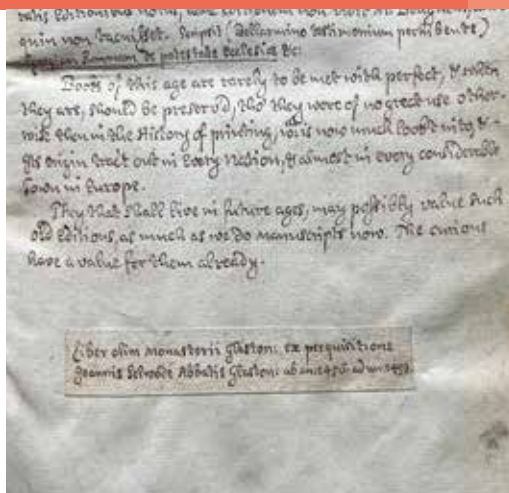 quin non tacuisset. Scripsit (Bellarmino testimonium perhibente)
Summam de potestate Ecclesiæ &c:
Books of this age are rarely to be met with perfect, & when
they are, should be preserv'd, tho' they were of no great use other-
wise then in the History of printing, is now much look'd into, & -
its origin trac't out in Every Nation, & almost in every considerable
Town in Europe.
They that shall live in future ages, may possibly value such
old Editions, as much as we do manuscripts now. The curious
have a value for them already.
Liber olim Monasterii Glaston: ex perquisitione
Joannis Abbatis Glaston: ab an: ad an: